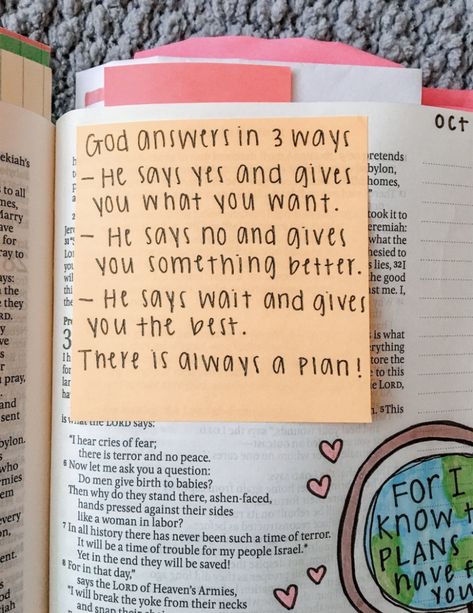 ekiah's
to all
mes,
Marry
have
for
ray to
ays:
the
e they
RD.
u pray,
and
sent
bylon.
who
mies
seen
every
on,
OCT
God answers in 3 ways
– He says yes and gives
you what you want.
– He says no and gives
you something better.
– He says wait and gives
you the best.
There is always a plan!
pretends
bylon,
homes,
took it to
eremiah:
what the
hesied to
s lies, 32 I
the good
nst me. I,
is what
everything
tore the
to this
LORD,
5 This
is what the LORD says:
"I hear cries of fear;
there is terror and no peace.
6 Now let me ask you a question:
Do men give birth to babies?
Then why do they stand there, ashen-faced,
hands pressed against their sides
like a woman in labor?
7 In all history there has never been such a time of terror.
It will be a time of trouble for my people Israel.*
Yet in the end they will be saved!
8 For in that day,"
says the LORD of Heaven's Armies,
"I will break the yoke from their necks
and snap their
FOR I
KNOW
PLANS
have
you